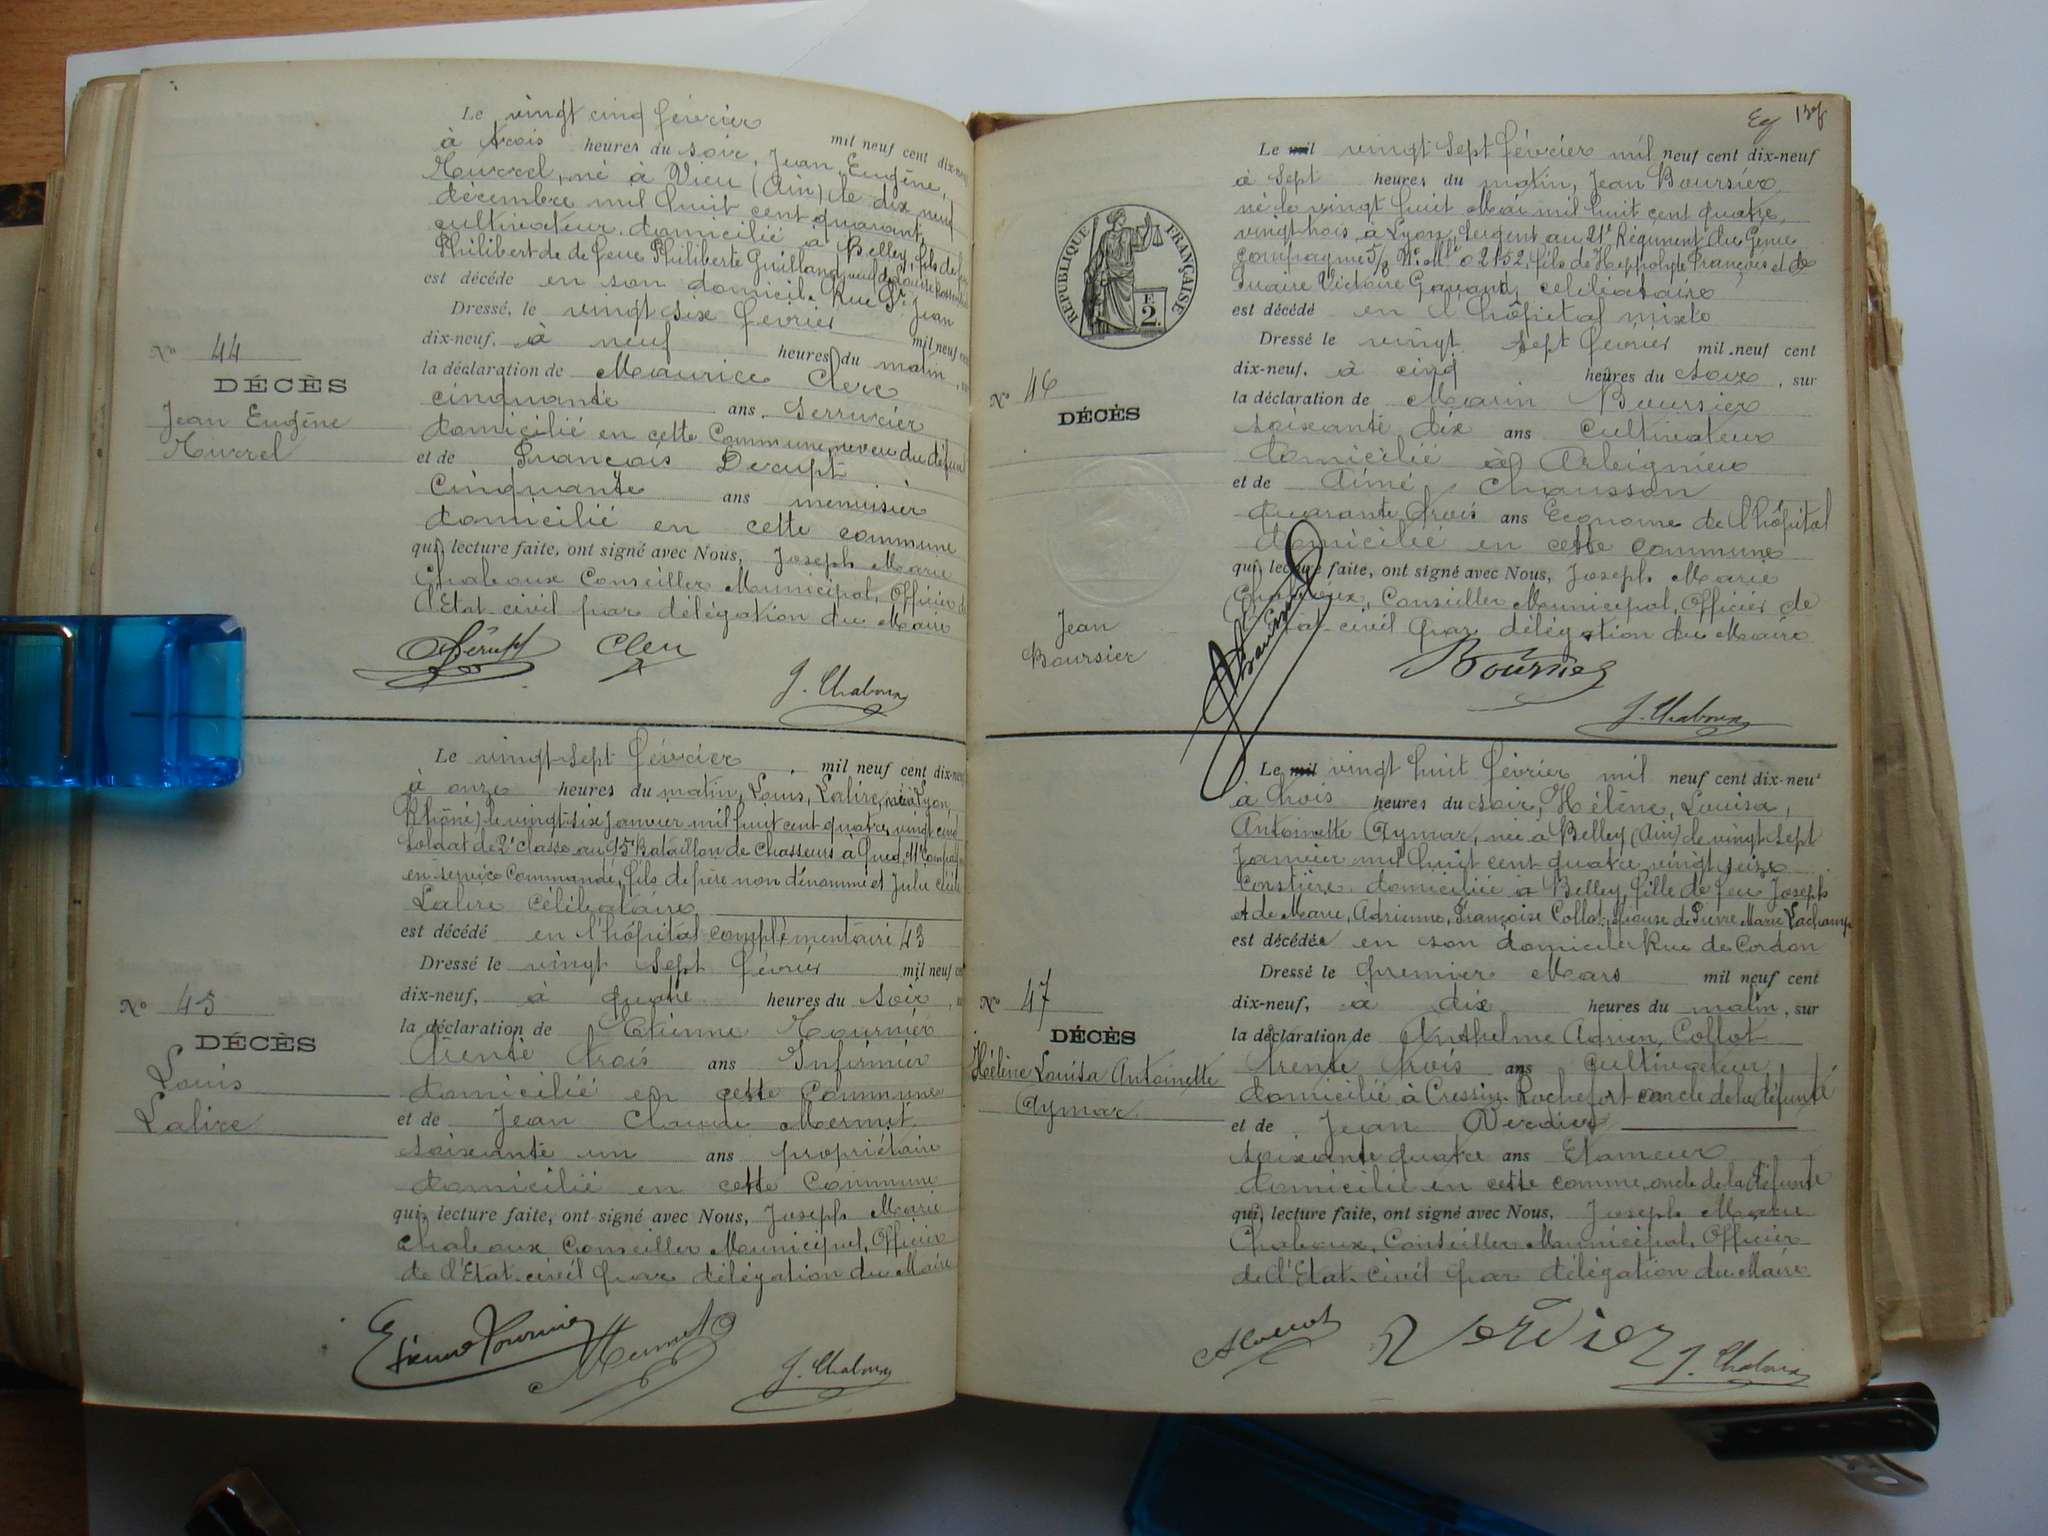 Le vingt cinq février
mil neuf cent dix-neuf
à trois heures du soir, Jean Eugène,
né à Vieu (Ain) le dix neuf
décembre mil huit cent quarante
cultivateur domicilié à Belley, fils de feu
Philibert de feue Philiberte Guilland
est décédé en son domicile Rue St Jean
Dressé, le vingt six février mil neuf cent
dix-neuf, à neuf heures du matin, sur
la déclaration de Maurice Clerc
cinquante ans, Serrurier
domicilié en cette Commune, neveu du défunt
et de François Dérupt
Cinquante ans menuisier
domicilié en cette commune
qui, lecture faite, ont signé avec Nous, Joseph Marie
Chaboux Conseiller Municipal, Officier de
l'Etat civil par délégation du Maire
No 44
DÉCÈS
Jean Eugène
Dérupt Clerc
J. Chaboux
Le vingt-sept février mil neuf cent dix-neuf
à onze heures du matin, Louis, Lalire, né à Lyon
(Rhône) le vingt-six janvier mil huit cent quatre vingt cinq
Soldat de 2e classe au 15e Bataillon de Chasseurs à pied, 11e Compagnie
en service Commandé, fils de père non dénommé et Julie
Lalire Célibataire
est décédé en l'hôpital complémentaire 43
Dressé le vingt sept février mil neuf cent
dix-neuf, à quatre heures du soir, sur
la déclaration de Etienne Tournier
trente trois ans Infirmier
domicilié en cette Commune
et de Jean Claude Mermet
soixante un ans propriétaire
domicilié en cette Commune
qui, lecture faite, ont signé avec Nous, Joseph Marie
Chaboux Conseiller Municipal, Officier
de l'Etat civil par délégation du Maire
No 45
DÉCÈS
Louis
Lalire
Etienne Tournier Mermet
J. Chaboux
137
Le mil vingt sept février mil neuf cent dix-neuf
à sept heures du matin, Jean Boursier
né le vingt huit Mai mil huit cent quatre
vingt trois à Lyon, Sergent au 21e Régiment du Génie
compagnie 5/8 No Mle 02152, fils de Hippolyte François et de
Marie Victoire Gavand, célibataire
est décédé en l'hôpital mixte
Dressé le vingt sept février mil neuf cent
dix-neuf, à cinq heures du soir, sur
la déclaration de Marin Boursier
soixante dix ans cultivateur
domicilié à Arbignieu
et de Aimé Chausson
quarante trois ans Econome de l'hôpital
domicilié en cette commune
qui, lecture faite, ont signé avec Nous, Joseph Marie
Chaboux, Conseiller Municipal, Officier de
l'Etat-civil par délégation du Maire
RÉPUBLIQUE FRANÇAISE
F.
2.
No 46
DÉCÈS
Jean
Boursier
Boursier
J. Chaboux
Le mil vingt huit février mil neuf cent dix-neuf
à trois heures du soir, Hélène, Louisa,
Antoinette Aymar, née à Belley (Ain) le vingt sept
Janvier mil huit cent quatre vingt seize
domiciliée à Belley, fille de feu Joseph
et de Marie, Adrienne, Françoise Collot, épouse de Pierre Marie Lachamp
est décédée en son domicile Rue de Cordon
Dressé le premier Mars mil neuf cent
dix-neuf, à dix heures du matin, sur
la déclaration de Anthelme Adrien Collot
trente trois ans cultivateur
domicilié à Cressin-Rochefort oncle de la défunte
et de Jean Verdier
soixante quatre ans Etameur
domicilié en cette comme, oncle de la défunte
qui, lecture faite, ont signé avec Nous, Joseph Marie
Chaboux, Conseiller Municipal, Officier
de l'Etat civil par délégation du Maire
No 47
DÉCÈS
Hélène Louisa Antoinette
Aymar
ACollot Verdier
J. Chaboux